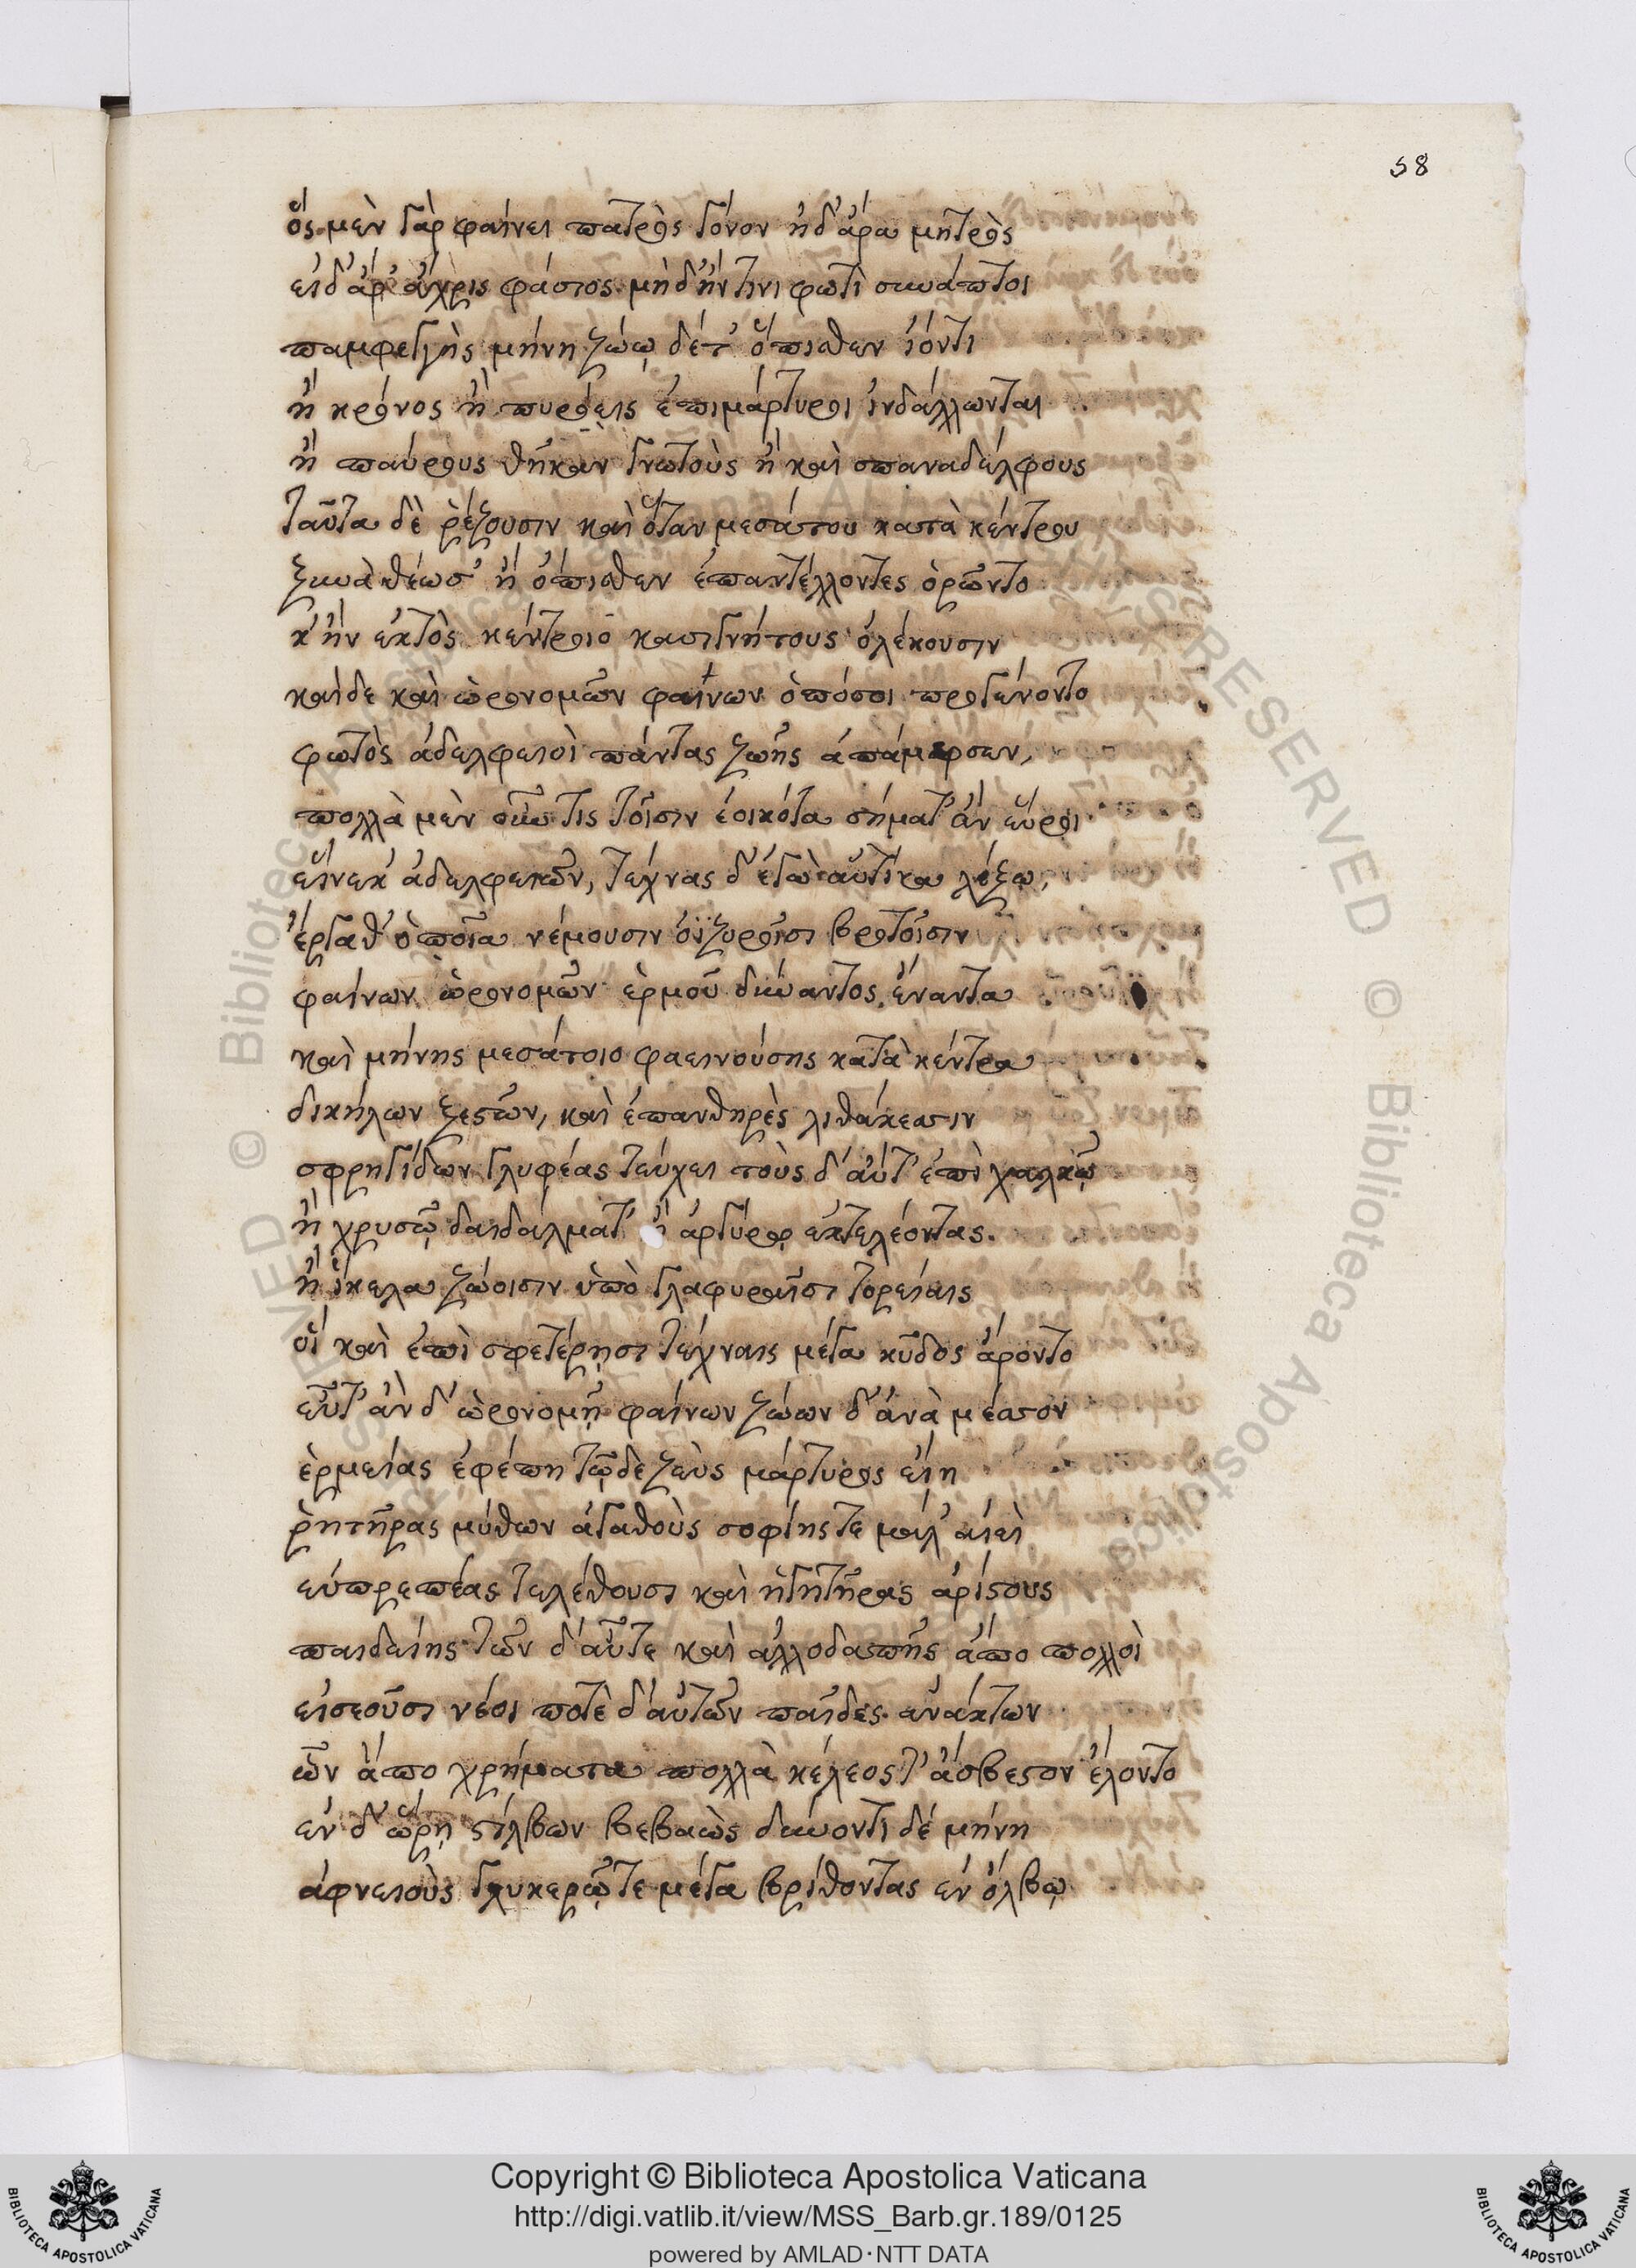 58
ὅς μὲν γὰρ φαίνει πατρὸς γόνον ἠδ' ἄρα μητρὸς
εἰ δ' ἄρ' ἄχρις φάσιος μὴδ' ἥν τινι φωτὶ συνάπτοι
παμφεγγὴς μήνη ζώῳ δέτ' ὄπισθεν ἰόντι
ἢ κρόνος ἢ πυρόεις ἐπιμάρτυροι ἰνδάλλωνται
ἢ παύρους θῆκαν γνωτοὺς ἢ καὶ σπαναδέλφους
ταῦτα δὲ ῥέζουσιν καὶ ὅταν μεσάτου κατὰ κέντρου
ξυνὰ θέωσ' ἢ ὄπισθεν ἐπαντέλλοντες ὁρῶντο
κ' ἢν ἐκτὸς κέντροιο κασιγνήτους ὀλέκουσιν
καίδε καὶ ὡρονομῶν φαίνων ὁπόσοι προγένοντο
φωτὸς ἀδελφειοὶ πάντας ζωῆς ἀπάμερσεν,
πολλὰ μὲν οὖν τις τοῖσιν ἐοικότα σήματ' ἂν εὕροι
εἵνεκ' ἀδελφειῶν, τέχνας δ' ἐγὼ αὐτίκα λέξω,
ἔργαθ' ὁποῖα νέμουσιν ὀϊζυροῖσι βροτοῖσιν
φαίνων ὡρονομῶν ἑρμοῦ δύναντος ἔναντα
καὶ μήνης μεσάτοιο φαεινούσης κατὰ κέντρα
δικήλων ξεστῶν, καὶ ἐπανθηρὲς λιθάκεσιν
σφρηγίδων γλυφέας τεύχει τοὺς δ' αὖτ' ἐπὶ χαλκῷ
ἢ χρυσῷ δαιδάλματ' ἢ ἀργύρῳ ἐκτελέοντας.
ἢ ἴκελα ζώοισιν ὑπὸ γλαφυραῖσι τορείαις
οἵ καὶ ἐπὶ σφετέρῃσι τέχναις μέγα κῦδος ἄροντο
εὖτ' ἂν δ' ὡρονομῇ φαίνων ζώων δ' ἀνὰ μέσσον
ἑρμείας ἐφέπη τῷδε ζεὺς μάρτυρος εἴη
ῥητῆρας μύθων ἀγαθοὺς σοφίης τε μάλ' αἰεὶ
εὐπρεπέας τελέθουσι καὶ ἡγητῆρας ἀρίστους
παιδείης τῶν δ' αὖτε καὶ ἀλλοδαπῆς ἄπο πολλοὶ
εἰσεοῦσι νέοι ποτὲ δ' αὐτῶν παῖδες ἀνάκτων
ὧν ἄπο χρήματα πολλὰ κέλεος τ' ἄσβεστον ἕλοντο
ἐν δ' ὥρῃ στίλβων βεβαὼς δύνοντι δέ μήνη
ἀφνειοὺς γλυκερῷτε μέγα βρίθοντας ἐν ὄλβῳ
Copyright © Biblioteca Apostolica Vaticana
http://digi.vatlib.it/view/MSS_Barb.gr.189/0125
powered by AMLAD·NTT DATA